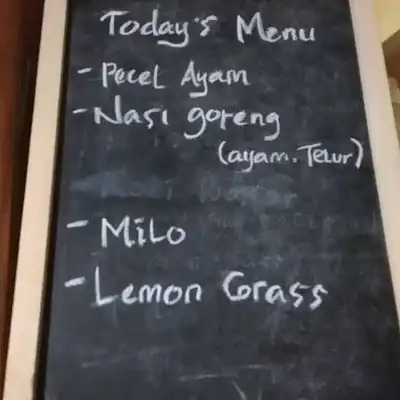 Today's Menu
- Pecel Ayam
- Nasi goreng
(ayam. Telur)
- Milo
- Lemon Grass